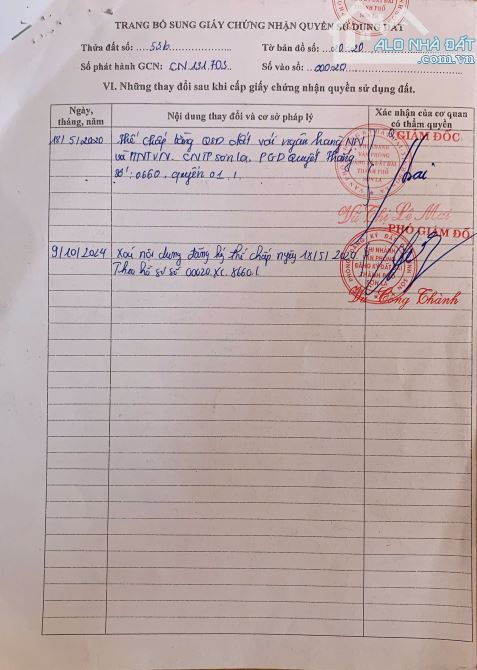 TRANG BỔ SUNG GIẤY CHỨNG NHẬN QUYỀN SỬ DỤNG ĐẤT
ALO NHÀ ĐẤT
.com.vn
Thửa đất số: 536 Tờ bản đồ số: 20
Số phát hành GCN: CN 131.703 Số vào sổ: 00020
VI. Những thay đổi sau khi cấp giấy chứng nhận quyền sử dụng đất.
Ngày, tháng, năm
Nội dung thay đổi và cơ sở pháp lý
Xác nhận của cơ quan có thẩm quyền
18/5/2020 Thế chấp bằng QSD đất với ngân hàng NN
và PTNTVN. CNTP Sơn La, PGD Quyết Thắng
số: 0660. quyển 01.
GIÁM ĐỐC
Vũ Thị Lê Mai
PHÓ GIÁM ĐỐ
9/10/2024 Xoá nội dung đăng ký thế chấp ngày 18/5/2020
Theo hồ sơ số 00020.XC.8660.1
CHI NHÁNH
VĂN PHÒNG
ĐĂNG KÝ ĐẤT ĐAI
THÀNH PHỐ
SƠN LA
Công Thành